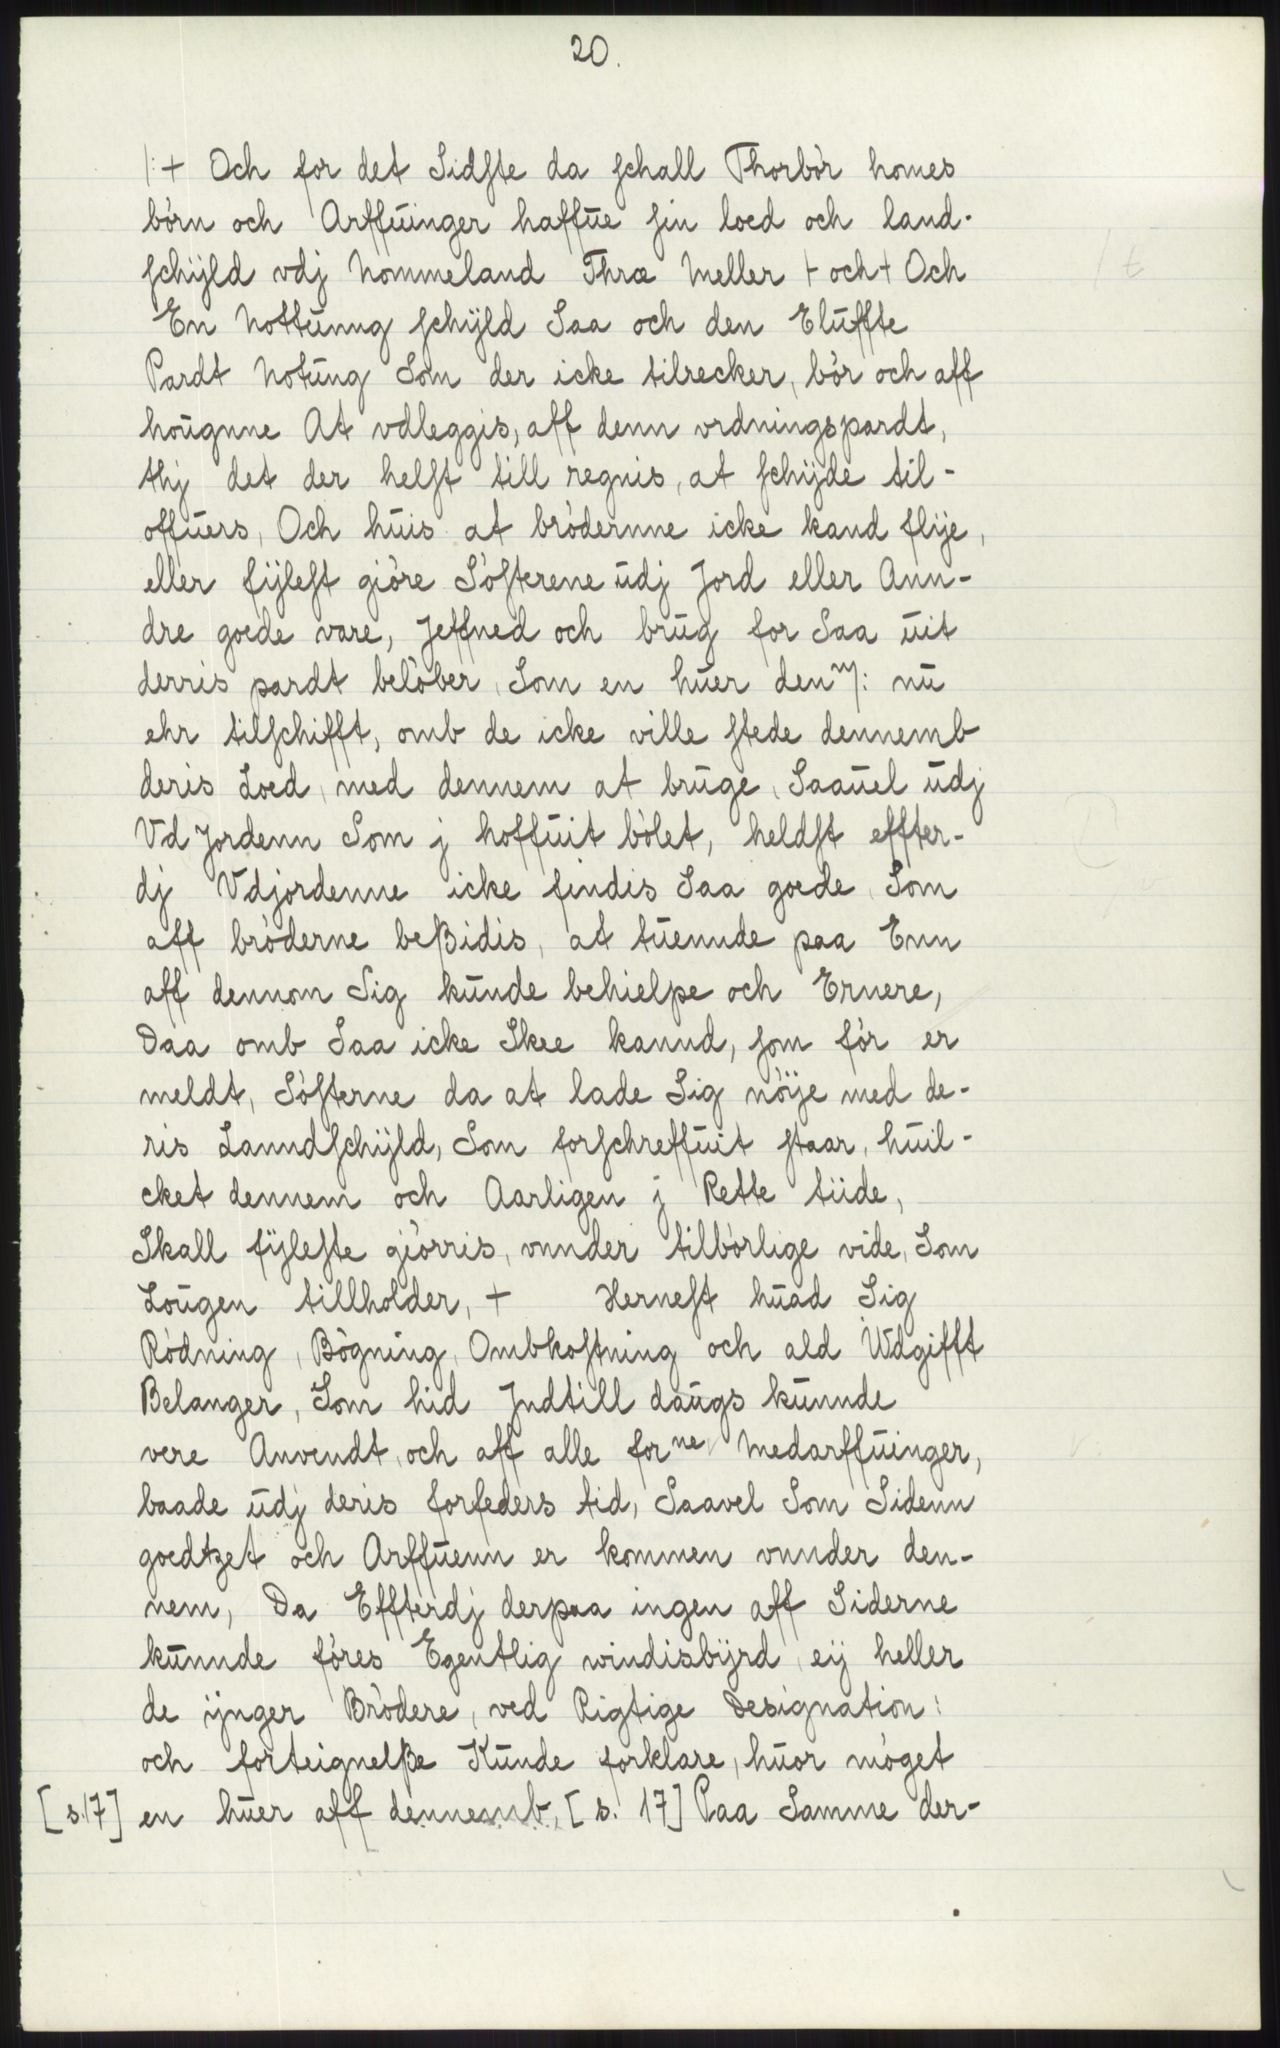 20.
|:+ Och for det Sidste da schall Thorbör homes
börn och Arffŭinger haffŭe sin loed och land-
schÿld vdj Nommeland Thræ Meller + och + Och
En Nottŭnng schÿld Saa och den Elŭffte
Pardt Notŭng Som der icke tilrecker, bör och aff
hoŭgnne At vdleggis, aff denn vrdningspardt,
thj det der helst till regnis, at schÿde til-
offŭers, Och hŭis at brödernne icke kand flÿe,
eller fÿlest giöre Sösterene ŭdj Jord eller Ann-
dre goede vare, Jeffned och brŭg for Saa ŭit
derris pardt belöber, Som en hŭer denm: nŭ
ehr tilschifft, omb de icke ville stede dennemb
deris Loed, med dennem at brŭge, Saaŭel ŭdj
Vd Jordenn Som j hoffŭit bölet, heldst effter-
dj Vdjordenne icke findis Saa goede, Som
aff bröderne beßidis, at tŭennde paa Enn
aff dennom Sig kŭnde behielpe och Ernere,
Daa omb Saa icke Skee kannd, som för er
meldt, Sösterne da at lade Sig nöÿe med de-
ris Lanndschÿld, Som forschreffŭit staar, hŭil-
cket dennem och Aarligen j Rette tiide,
Skall fÿleste giörris, vnnder tilbörlige vide, Som
Loŭgen tillholder, + Hernest hŭad Sig
Rödning, Bögning, Ombkostning och ald Wdgifft
Belanger, Som hid Jndtill daŭgs kŭnnde
vere Anvendt, och aff alle forne Medarffŭinger,
baade ŭdj deris forfeders tid, Saavel Som Sidenn
goedtzet och Arffŭenn er kommen vnnder den-
nem, Da Effterdj derpaa ingen aff Siderne
kŭnnde föres Egentlig windisbÿrd, eÿ heller
de ÿnger Brödere, ved Rigtige Designation:
och forteignelße Kŭnde forklare, hŭor möget
[s.17] en hŭer aff dennemb, [s. 17] Paa Samme der-